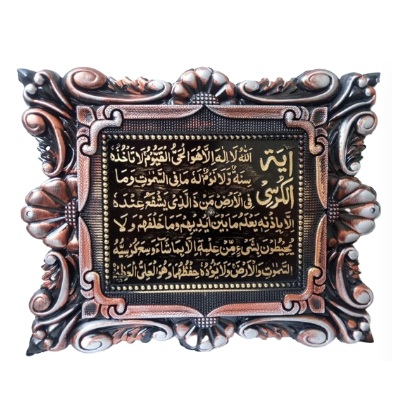 آية الكرسي
الله لا إله إلا هو الحي القيوم لا تأخذه
سنة ولا نوم له ما في السموت وما
في الارض من ذا الذي يشفع عنده
الا باذنه يعلم ما بين ايديهم وما خلفهم ولا
يحيطون بشيء من علمه الا بما شاء وسع كرسيه
السموت والارض ولا يؤده حفظهما وهو العلي العظيم